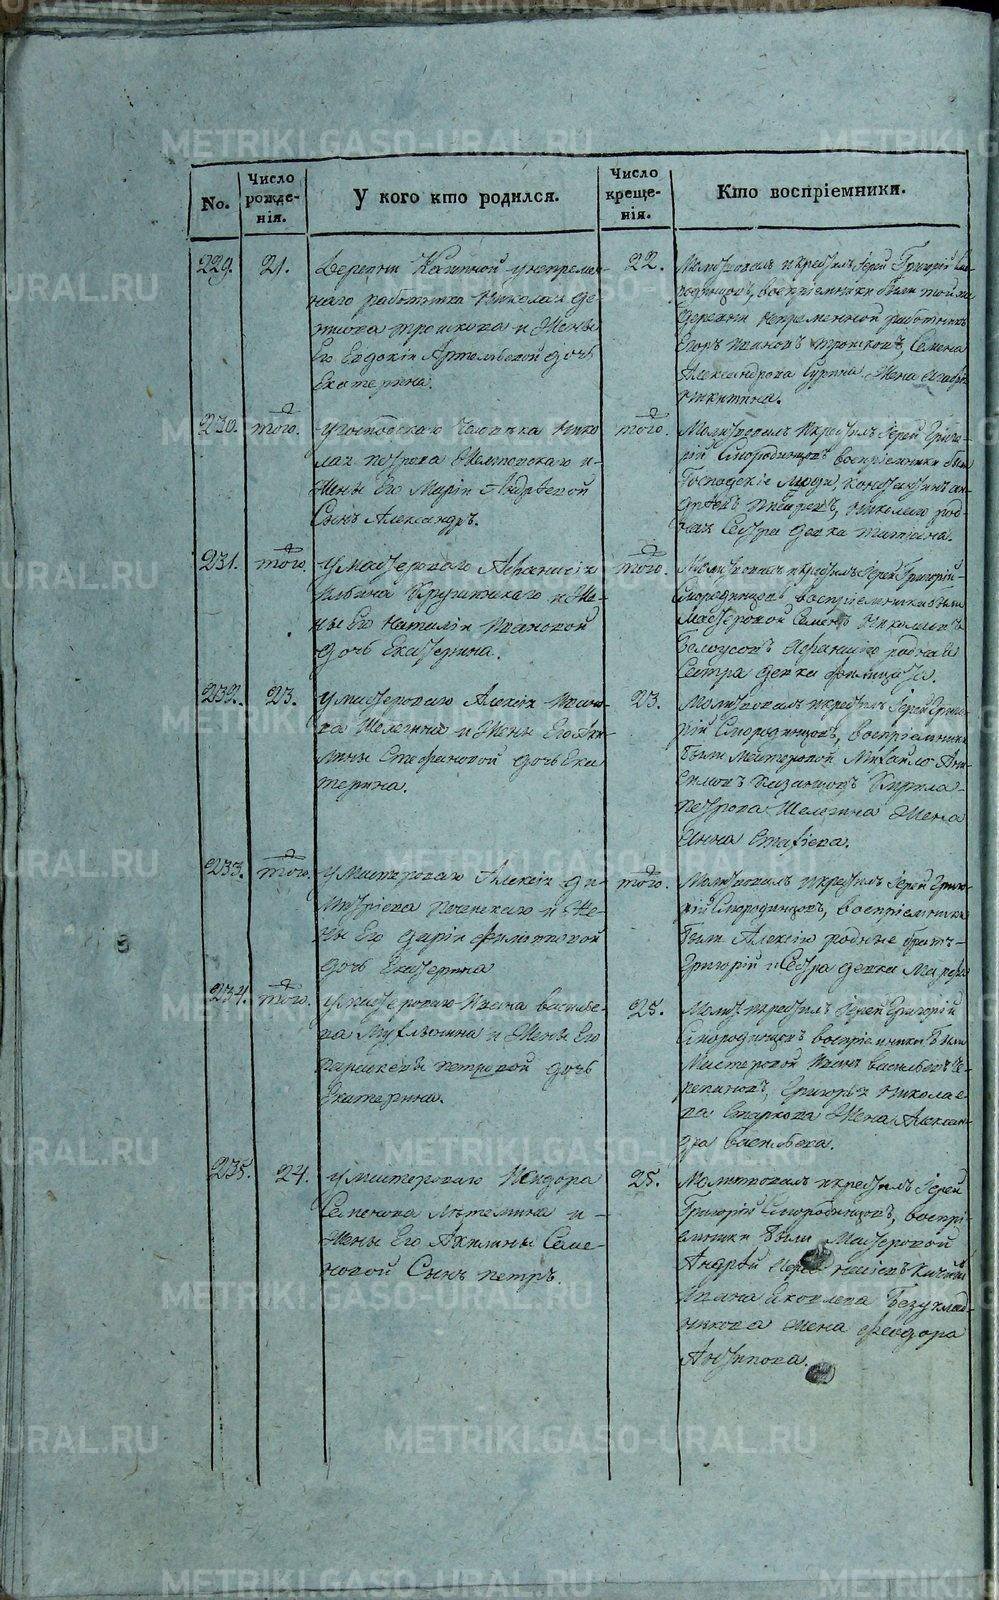 METRIKI.GASO-URAL.RU
No.
Число рожде-нія.
У кого кто родился.
Число креще-нія.
Кто воспріемники.
229.
21.
Деревни у непремен-
наго работника Николая
и жены
Его Евдокіи дочь
Екатерина.
22.
Молитвовалъ и крестилъ Іерей Григорій
воспріемники были той же
деревни непременной работникъ
Егоръ Ивановъ Семена
Александрова жена
Никитина.
230.
того.
у господскаго человѣка Нико-
лая Петрова и
жены Его Маріи Андрѣевой
Сынъ Александръ.
того.
Молитвовалъ и крестилъ Іерей Григо-
рій Смородинцовъ воспріемники были
Господскіе люди, Константинъ Ан-
Николаю род-
ная Сестра девка Татіана.
231.
того.
у мастероваго Афанасія
и же-
ны Его Наталіи Ивановой
дочь Екатерина.
того.
Молитвовалъ и крестилъ Іерей Григорій
Смородинцовъ воспріемники были
Мастеровой Семенъ Николаевъ
Белоусовъ Афанасію родная
Сестра девка
232.
23.
у мастероваго Алексія Ивано-
ва Шелегина и жены Его Аки-
лины Стефановой дочь Ека
терина.
23.
Молитвовалъ и крестилъ Іерей Григо-
рій Смородинцовъ, воспріемники
были мастеровой Михайло Ани-
симовъ Казанцовъ Кирила
Петрова Шелегина жена
Анна
233.
того.
у Мастероваго Алексія Ди-
митріева и же-
ны Его Даріи Филиповой
дочь Екатерина
того.
Молитвовалъ и крестилъ Іерей Григо-
рій Смородинцовъ, воспріемники
были Алексію родные братъ
Григорій и Сестра девка Марфа
234.
того.
у мастероваго Ивана Василье-
ва и жены Его
Параскевы Петровой дочь
Екатерина.
25.
Молит. и крестилъ Іерей Григорій
Смородинцовъ воспріемники были
Мастеровой Иванъ Васильевъ Че-
репановъ, Григорья Николае-
ва Старкова жена Алексан-
дра Васильева.
235.
24.
у мастероваго Исидора
Семенова и
жены Его Акилины Семе-
новой Сынъ Петръ.
25.
Молитвовалъ и крестилъ Іерей
Григорій Смородинцовъ, воспрі-
емники были Мастеровой
Андрѣй
Ивана Яковлева Безуклад-
никова жена Феодора
Антипова.